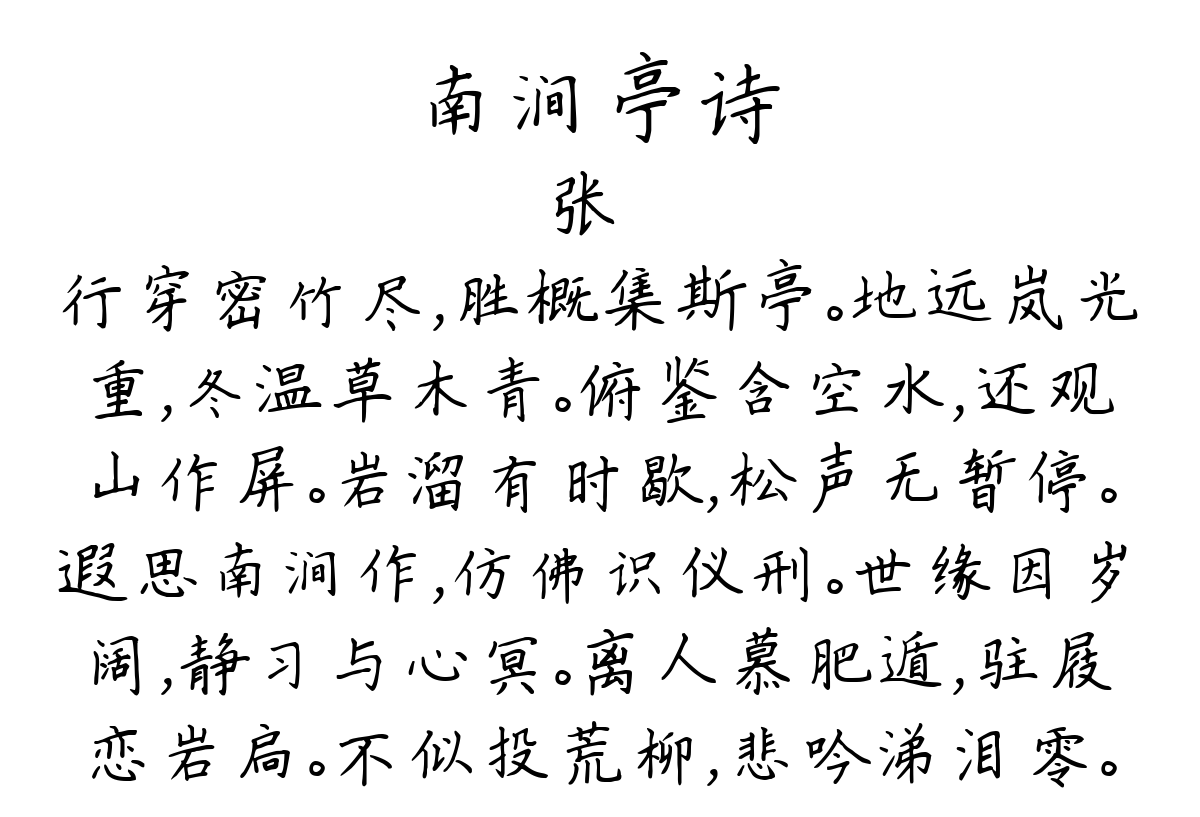 南涧亭诗
张
行穿密竹尽,胜概集斯亭。地远岚光
重,冬温草木青。俯鉴含空水,还观
山作屏。岩溜有时歇,松声无暂停。
遐思南涧作,仿佛识仪刑。世缘因岁
阔,静习与心冥。离人慕肥遁,驻屐
恋岩扃。不似投荒柳,悲吟涕泪零。